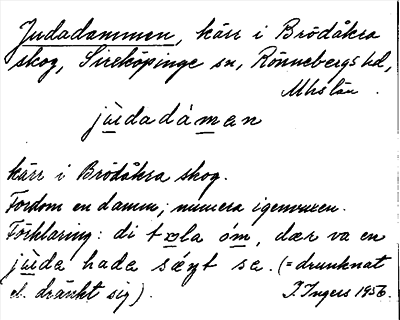 Judadammen, kärr i Brödåkra
skog, Sireköpinge sn, Rönnebergs hd,
Mhs län.
jùdadáman
kärr i Brödåkra skog.
Fordom en damm; numera igenvuxen.
Förklaring: di tala óm, dær va en
jùda hade sǽŋt se. (= drunknat
el. dränkt sig).
I. Ingers 1956.